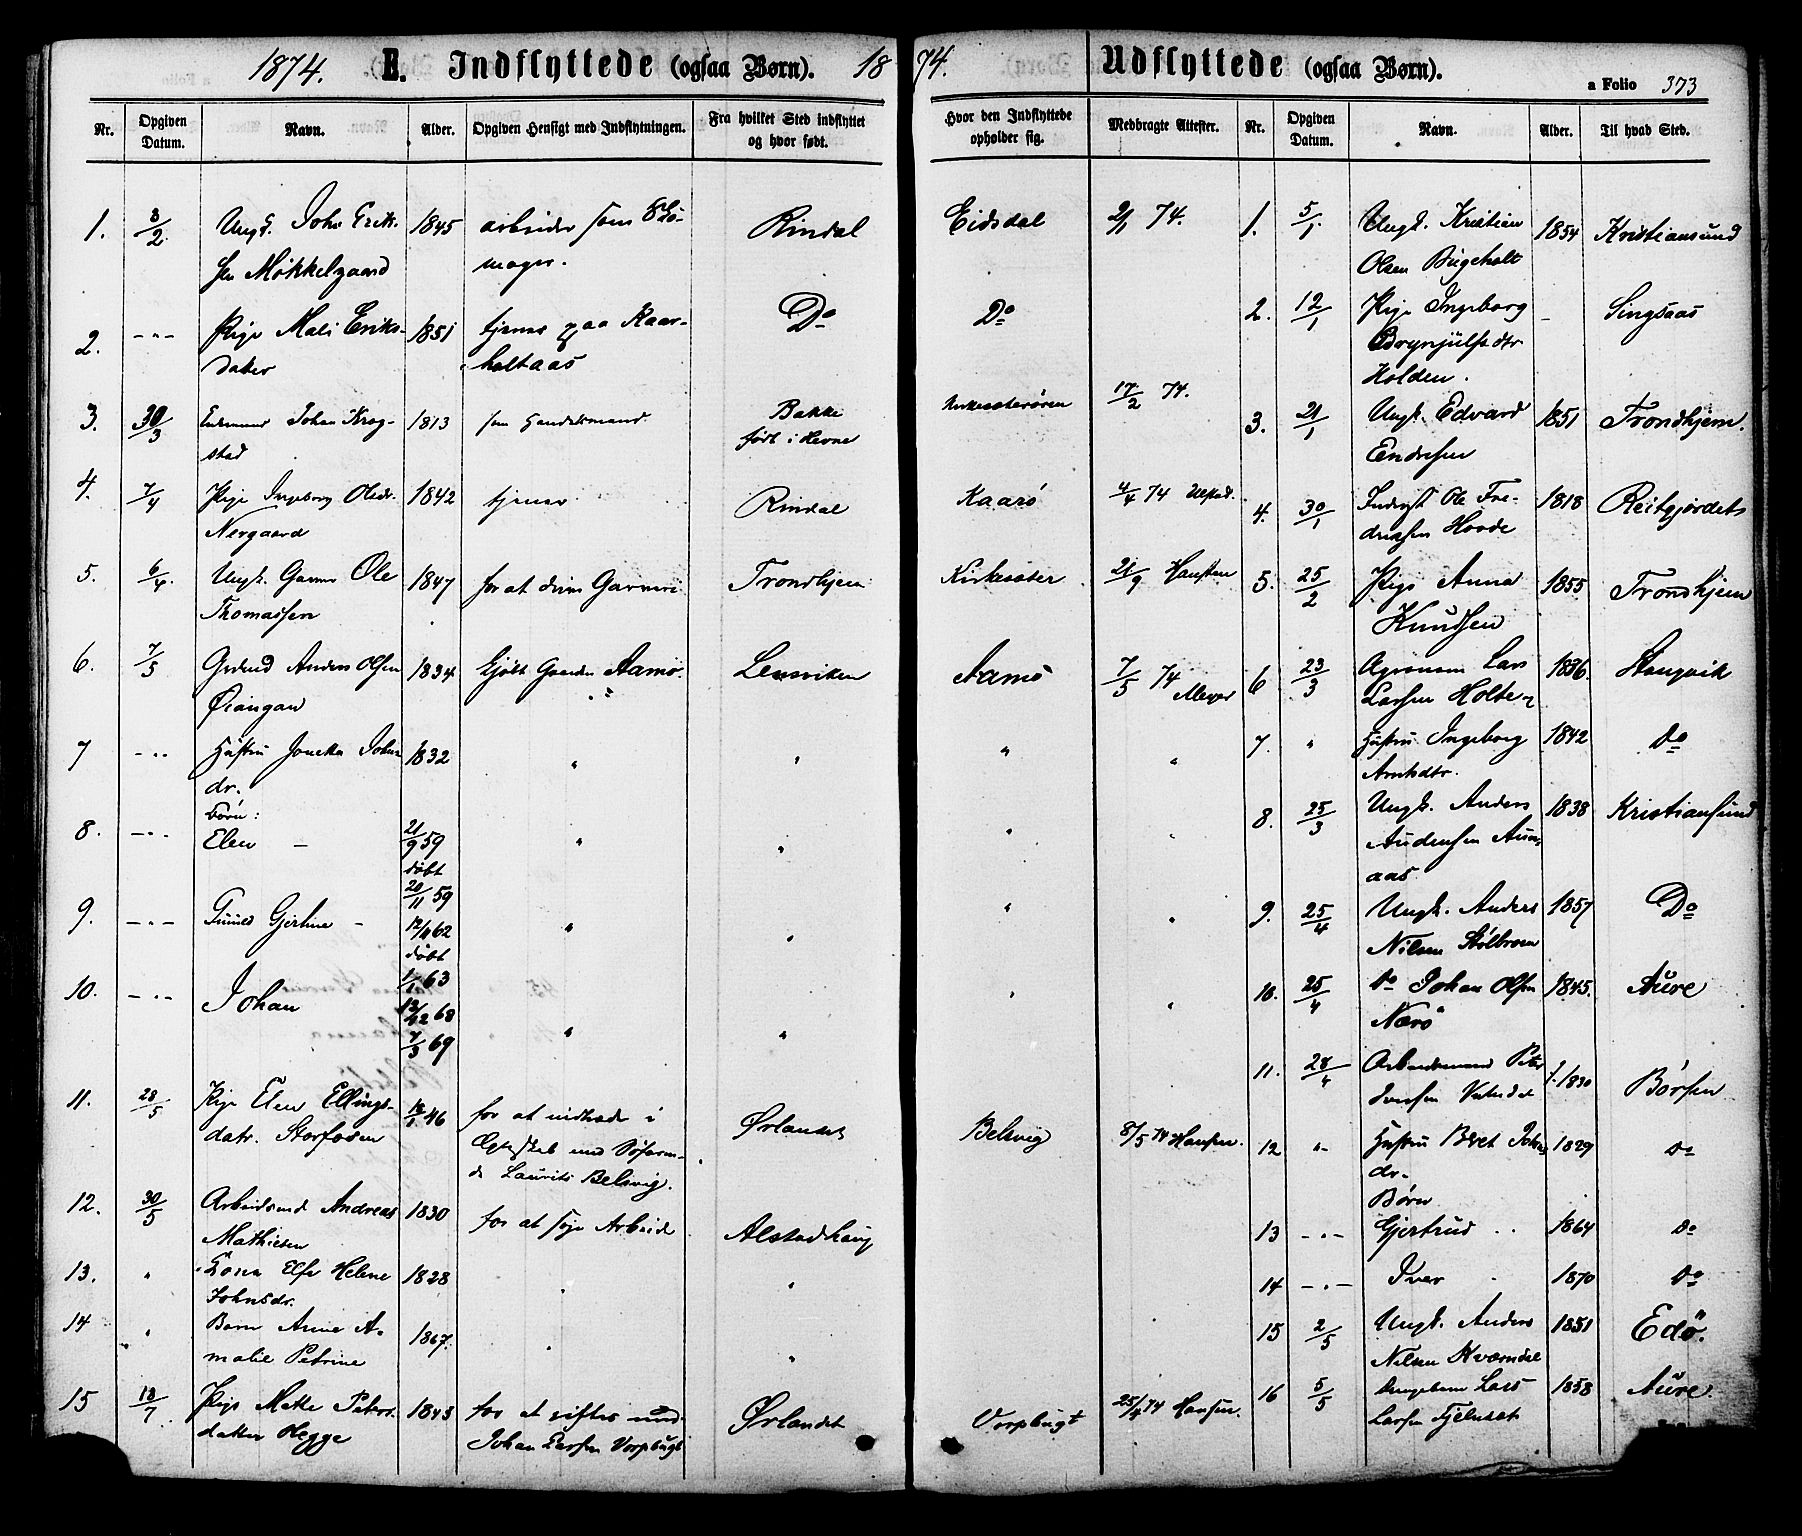 1874. E. Indflyttede (ogsaa Børn). 1874.
Nr. Opgiven Datum. Navn. Alder. Opgiven Hensigt med Indflytningen. Fra hvilket Sted indflyttet og hvor født. Hvor den Indflyttede opholder sig. Medbragte Attester.
1. 3/2 Ungk. John Erik- 1845 arbeider som Sko- Rindal Eidsdal 2/1 74.
sen Møkkelgaard mager.
2. -"- Pige Mali Eriks- 1851 tjener paa Kaar- Do Do
datter holtaas
3. 30/3 Johan Krog- 1813 som Handelsmand Bakke Kirkesæterøren 17/2 74.
stad født i Hevne
4. 7/4 Pige Ingeborg Olsdr. 1842 tjener Rindal Kaarø 4/4 74
Nergaard
5. 6/4. Ungk. Garver Ole 1847 for at drive Garveri Trondhjem Kirkesæter 21/9 Hansten
Thomassen
6. 7/5 Anders Olsen 1834 kjøbt Gaarden Aamo. Lensviken Aamo 7/5 74
Øiangan Meyer
7 -"- Hustru Johns 1832 " " " "
dr.
Børn:
8. -"- Elen - 21/9 59 " " " "
døbt
20/11 59
9. -"- Gjertine - 12/11 62 " " " "
døbt
1/1 63
10. -"- Johan 13/12 68 " " " "
7/3 69
11. 28/5 Pige Elen Ellings- 46 for at indtræde i Ørlandet Belsvig 8/5 74 Hansen.
datr. Storfosen Ægteskab med
Laurits Belsvig.
12. 30/5 Arbeidsmd Andreas 1830 for at søge Arbeide Alstadhaug
Mathisen
13. " Kona Helene 1828 " "
Johnsdr.
14 " Barn Anne A- 1867. " "
malie Petrine
15 18/7 Pige Mette Peters- 1843 for at giftes med Ørlandet Vorpbugt 25/4 74 Hansen.
datter Hegge Johan Larsen Vorpbugt
Udflyttede (ogsaa Børn).
a Folio 373
Nr. Opgiven Datum. Navn. Alder. Til hvad Sted.
1. 5/1 Ungk. Kristian 1854 Kristiansund
Olsen Bugeholt
2. 12/1 Pige Ingeborg - Singsaas
Brynjulfsdtr
Holden.
3. 21/1 Ungk. Edvard 1851 Trondhjem.
Endresen
4. 30/1 Inderst Ole Fre- 1818 Reitgjerdets
driksen Hovde
5. 25/2 Pige Anna 1855 Trondhjem
Knudsen
6 23/3 Agronom Lars 1836. Stangvik
Larsen Holten
7. " Hustru Ingeborg 1842 Do
Arntsdtr.
8. 25/3 Ungk. Anders 1838 Kristiansund
Andersen Aun-
aas.
9. 25/4 Ungk. Anders 1857 Do
Nilsen
10. 25/4 Do Johan Olsen 1845. Aure
Nærø
11. 28/4 Arbeidsmand Peter f. 1830 Børsen
Iversen
12 " Hustru Beret Johns 1829 Do
dr.
Børn
13 -"- Gjertrud 1864 Do
14 -"- Iver 1870 Do
15 2/5 Ungk. Anders 1851 Edø.
Nilsen Kværndal
16 5/5 Lars 1858 Aure.
Larsen